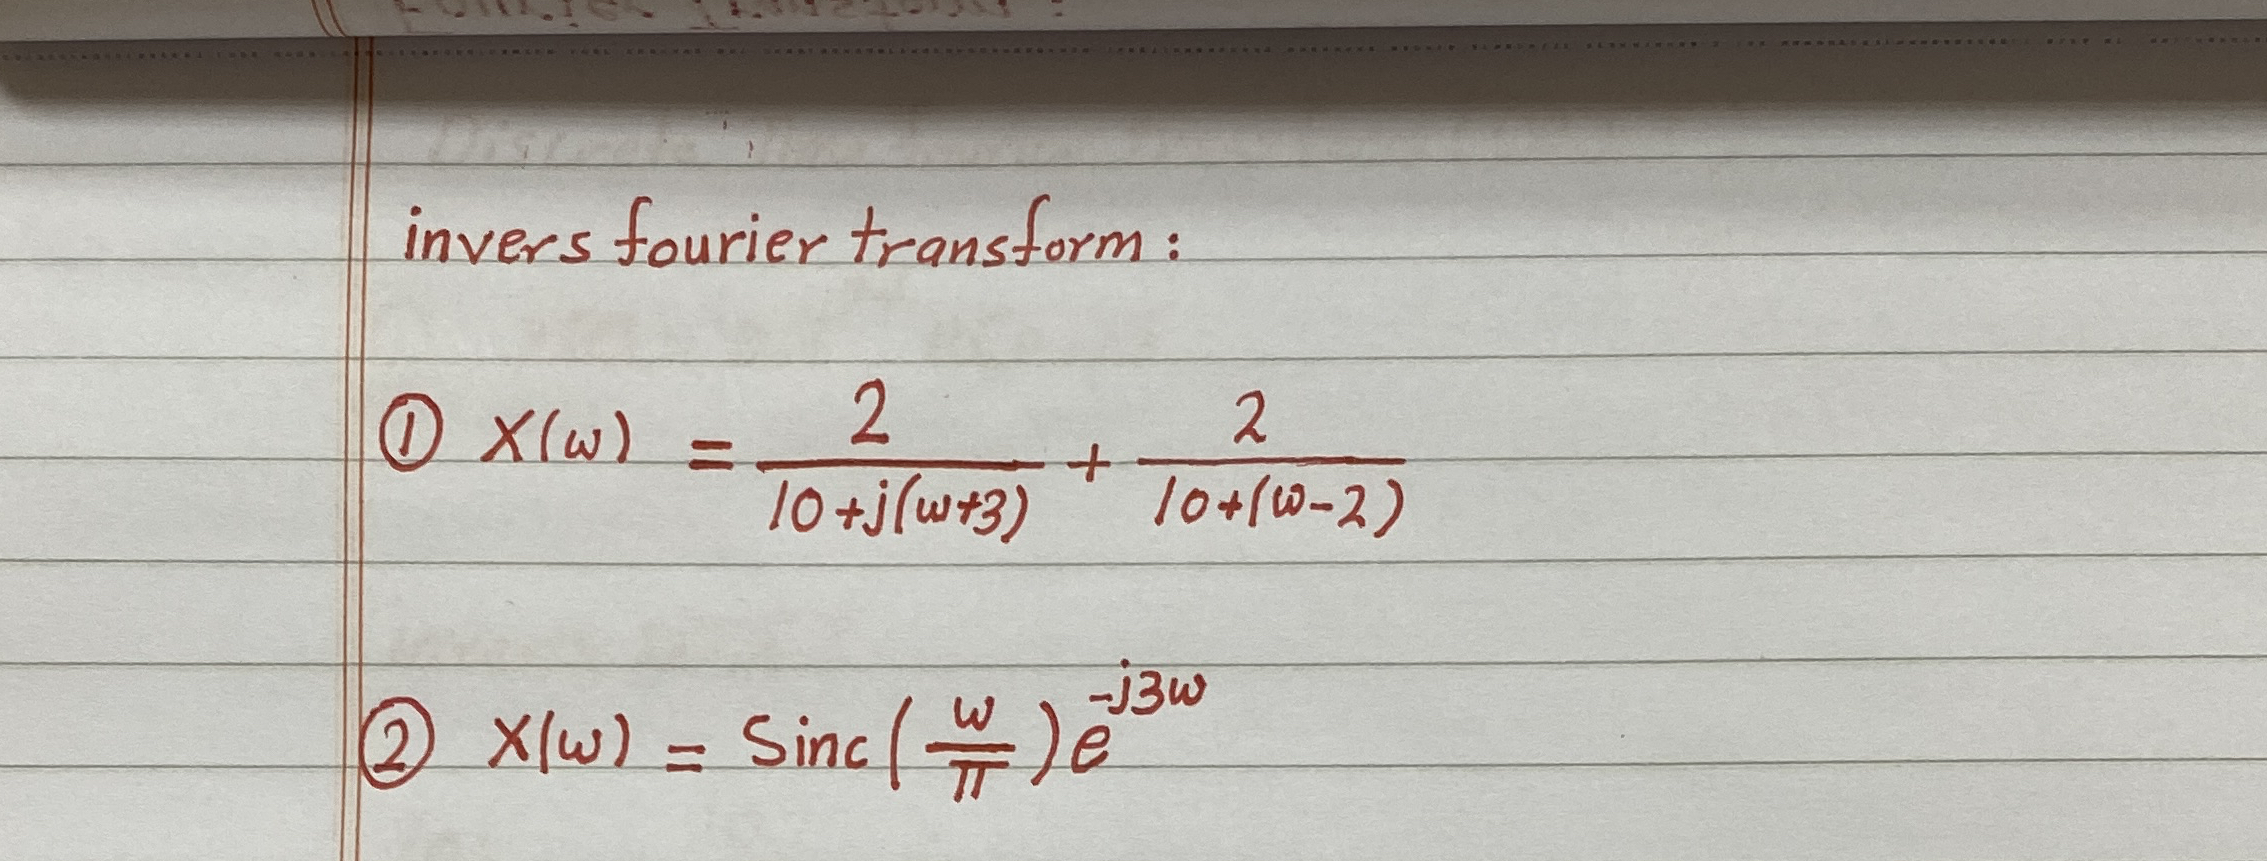 invers fourier transform:
① X(ω) = 2/(10+j(ω+3)) + 2/(10+(ω-2))
② X(ω) = Sinc(ω/π)e^{-j3ω}